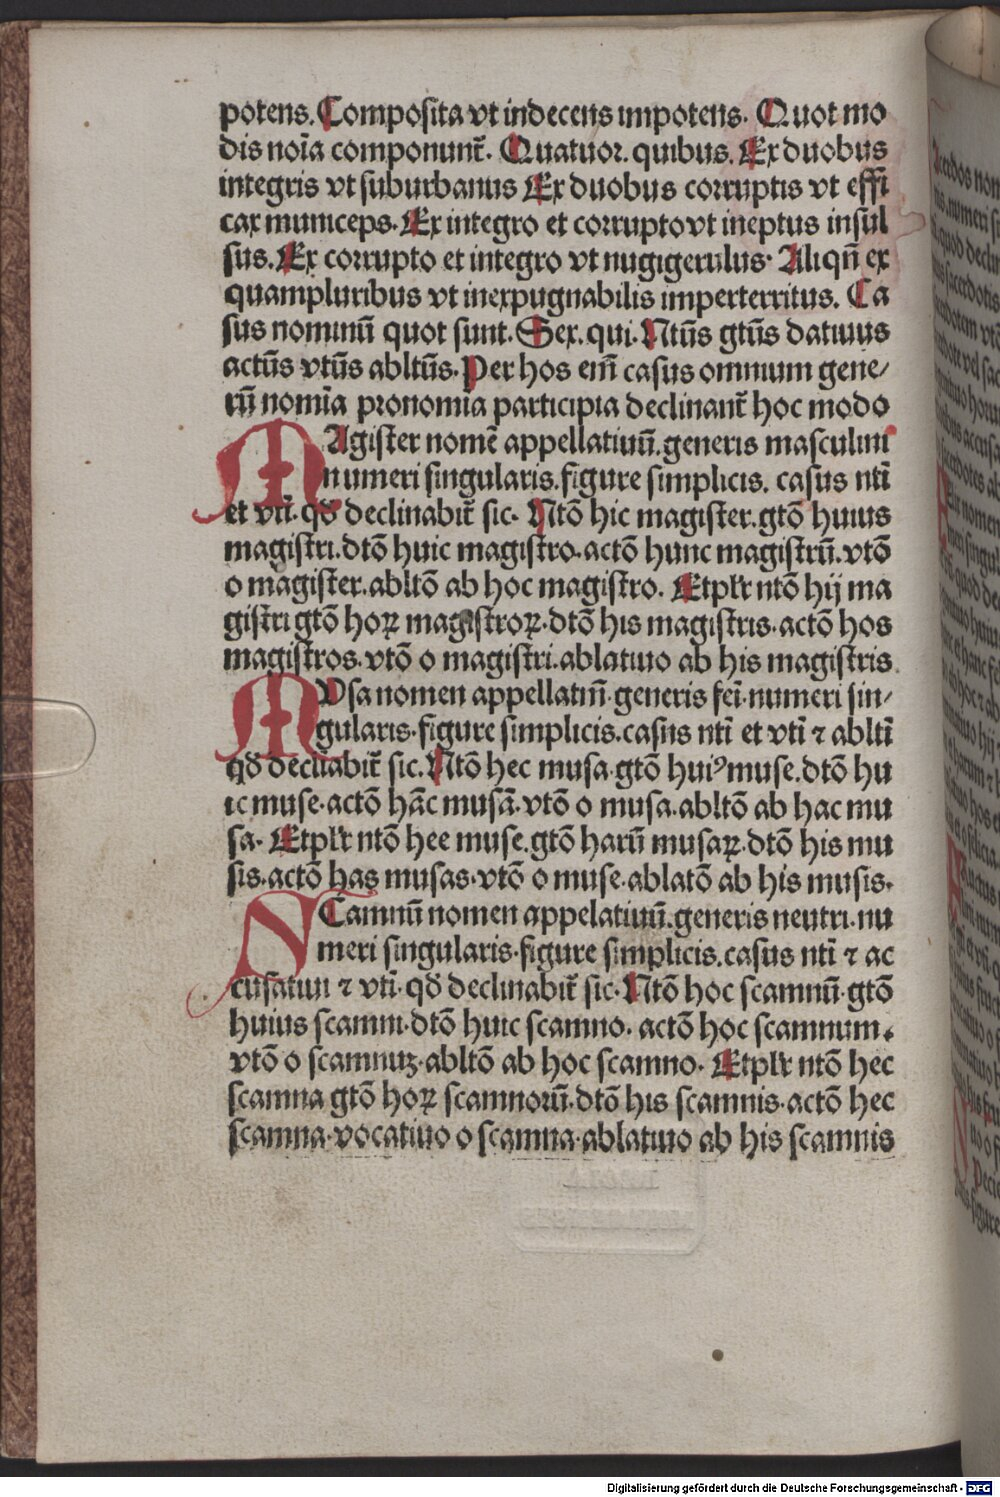 potens. Composita vt indecens impotens. Quot mo
dis noīa componunt̄. Quatuor. quibus. Ex duobus
integris vt suburbanus Ex duobus corruptis vt effi
cax municeps. Ex integro et corrupto vt ineptus insul
sus. Ex corrupto et integro vt nugigerulus. Aliqn̄ ex
quampluribus vt inexpugnabilis imperterritus. Ca
sus nominū quot sunt. Sex. qui. Ntūs gtūs datiuus
actūs vtūs abltūs. Per hos em̄ casus omnium gene/
rū nomīa pronomīa participia declinant̄ hoc modo
MAgister nomē appellatiuū. generis masculini
numeri singularis. figure simplicis. casus nti̅
et vti̅. qd̄ declinabit̄ sic. Ntō hic magister. gtō huius
magistri. dtō huic magistro. actō hunc magistrū. vtō
o magister. abltō ab hoc magistro. Et pl̄r ntō hij ma
gistri gtō hoꝝ magistroꝝ. dtō his magistris. actō hos
magistros. vtō o magistri. ablatiuo ab his magistris
MUsa nomen appellatiū̄. generis fei̅. numeri sin/
gularis. figure simplicis. casus nti̅ et vti̅ ⁊ ablti̅
qd̄ declīabit̄ sic. Ntō hec musa. gtō huiꝰ muse. dtō hu
ic muse. actō hāc musā. vtō o musa. abltō ab hac mu
sa. Et pl̄r ntō hee muse. gtō harū musaꝝ. dtō his mu
sis. actō has musas. vtō o muse. ablatō ab his musis.
SCamnū nomen appelatiuū. generis neutri. nu
meri singularis. figure simplicis. casus nti̅ ⁊ ac
cusatiui ⁊ vti̅. qd̄ declinabit̄ sic. Ntō hoc scamnū. gtō
huius scamni. dtō huic scamno. actō hoc scamnum.
vtō o scamnuꝫ. abltō ab hoc scamno. Et pl̄r ntō hec
scamna gtō hoꝝ scamnorū. dtō his scamnis. actō hec
scamna. vocatiuo o scamna. ablatiuo ab his scamnis
Digitalisierung gefördert durch die Deutsche Forschungsgemeinschaft - DFG